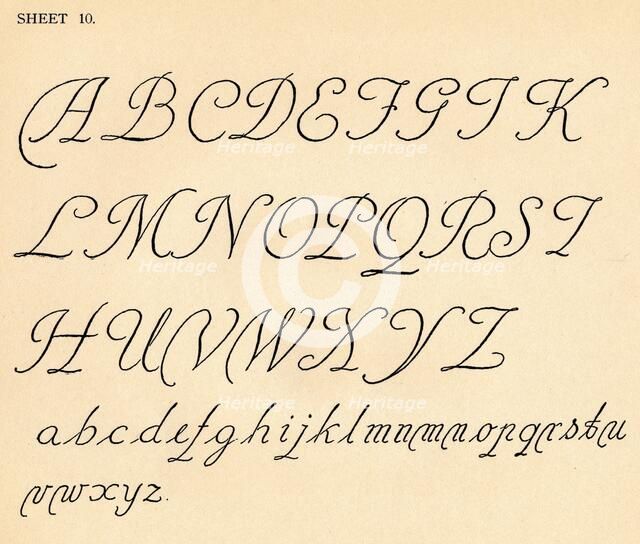 SHEET 10.
A B C D E F G I K
L M N O P Q R S T
H U V W X Y Z
a b c d e f g h i j k l m n m n o p q r s t u
v w x y z.
Heritage
Heritage
Heritage
Heritage
Heritage
Heritage
©